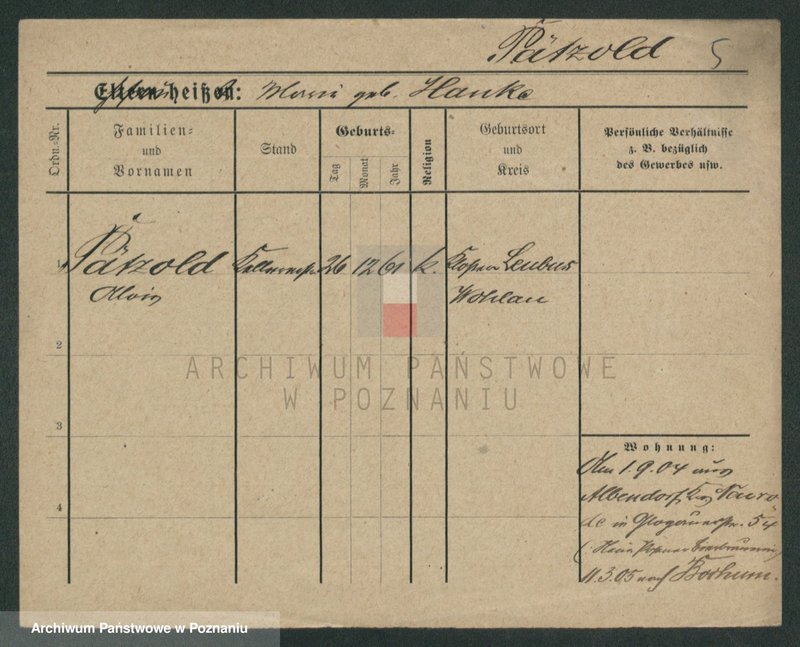 Pätzold 5
Eltern heißen: Maria geb. Hanke
Ordn.-Nr.
Familien-
und
Vornamen
Stand
Geburts-
Tag
Monat
Jahr
Religion
Geburtsort
und
Kreis
Persönliche Verhältnisse
z. B. bezüglich
des Gewerbes usw.
1 Pätzold 26 12 61 k. Kloster Leubus
Alois Wohlau
2
ARCHIWUM PAŃSTWOWE
W POZNANIU
3
4
Wohnung:
Am 1.9.04 aus
Albendorf, Krs Neuro
de in Glogauerstr. 54
11.3.05 nach Bochum.
Archiwum Państwowe w Poznaniu